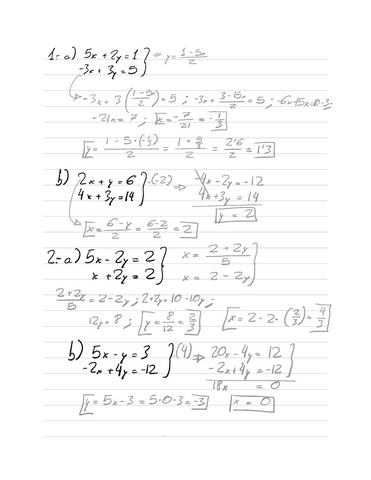 1.- a) 5x + 2y = 1 } ⇒ y = (1-5x)/2
-3x + 3y = 5
-3x + 3 ((1-5x)/2) = 5 ; -3x + (3-15x)/2 = 5 ; -6x + 15x = 10 - 3
-21x = 7 ; x = -7/21 = -1/3
y = (1 - 5·(-1/3))/2 = (1 + 5/3)/2 = 2'6/2 = 1'3
b) 2x + y = 6 } ·(-2) ⇒ -4x - 2y = -12
4x + 3y = 14 4x + 3y = 14
x = (6-y)/2 = (6-2)/2 = 2 y = 2
2.- a) 5x - 2y = 2 } x = (2+2y)/5
x + 2y = 2 x = 2 - 2y
(2+2y)/5 = 2 - 2y ; 2 + 2y = 10 - 10y ;
12y = 8 ; y = 8/12 = 2/3 x = 2 - 2·(2/3) = 4/3
b) 5x - y = 3 } (4) ⇒ 20x - 4y = 12
-2x + 4y = -12 -2x + 4y = -12
18x = 0
y = 5x - 3 = 5·0 - 3 = -3 x = 0